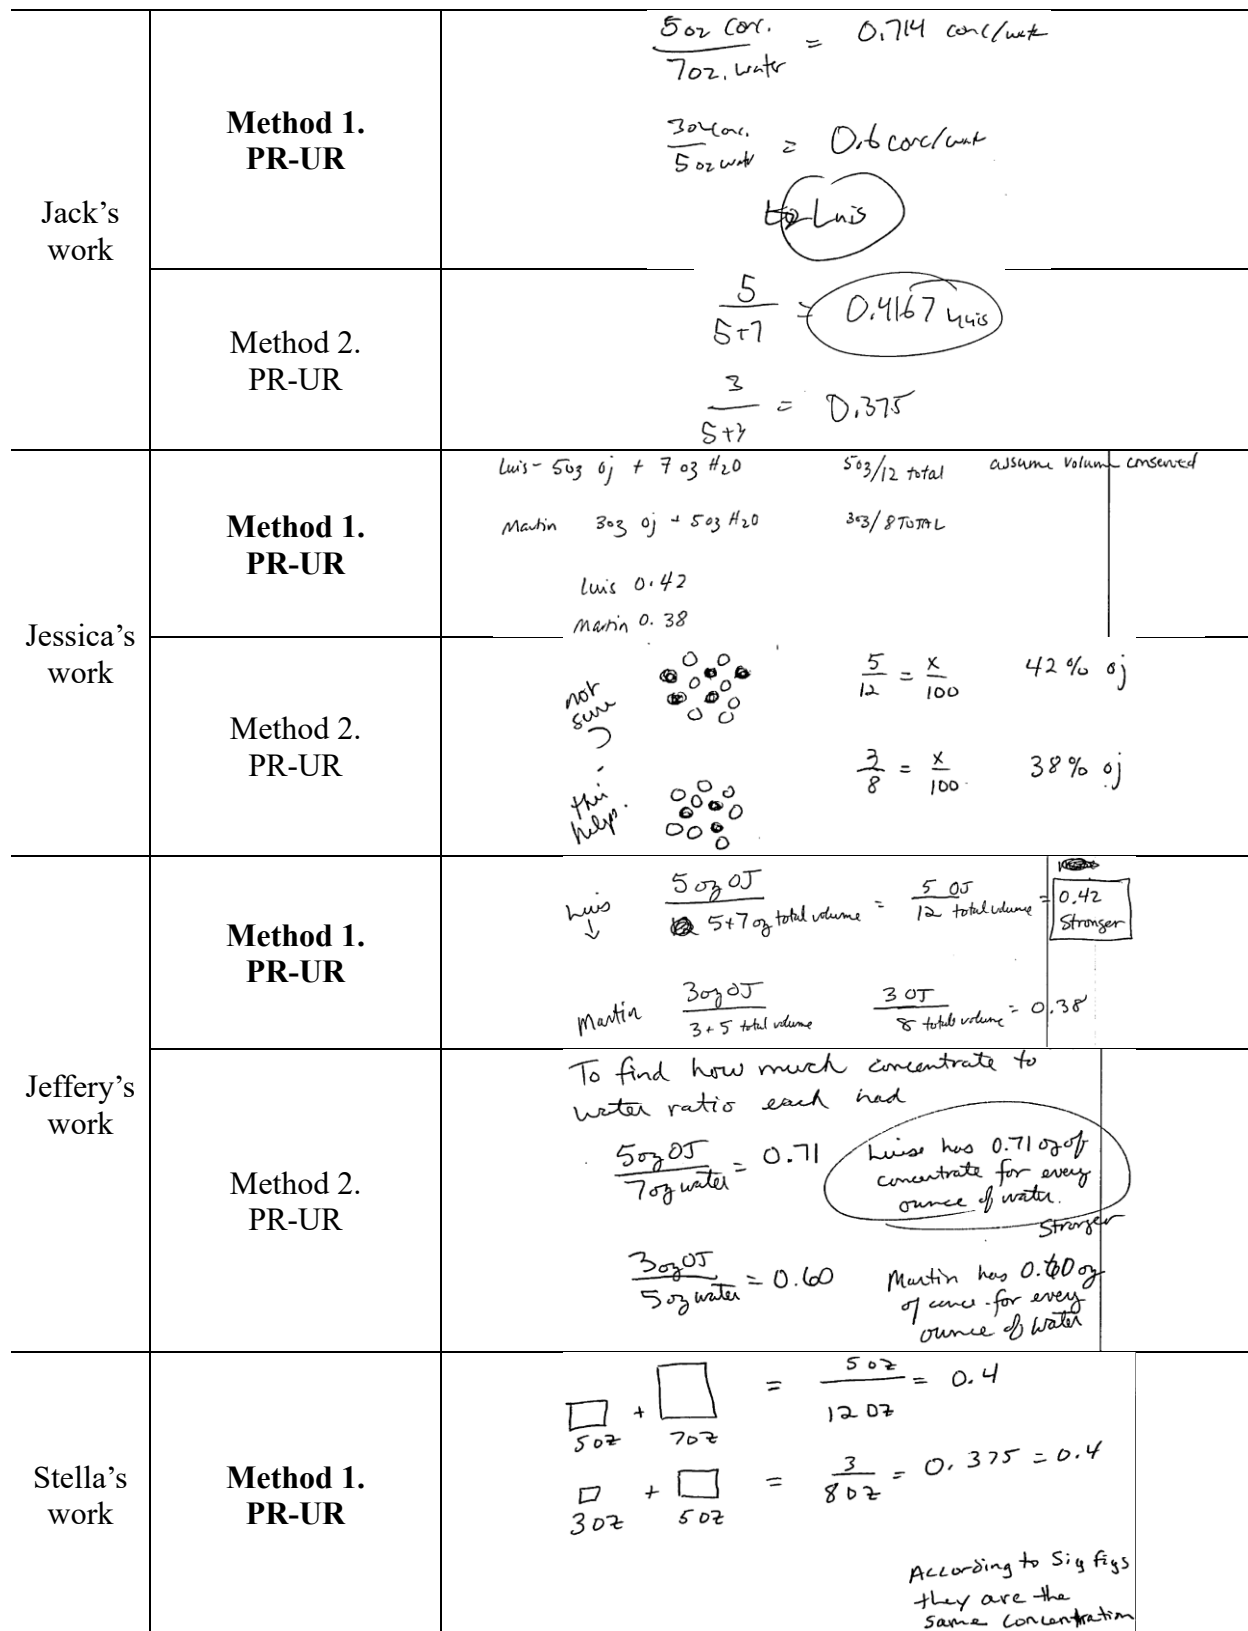 Jack's work
Method 1. PR-UR
5 oz Conc. / 7 oz. water = 0.714 conc/water
3 oz conc. / 5 oz water = 0.6 conc/water
Luis
Method 2. PR-UR
5 / 5+7 = 0.4167 Luis
3 / 5+3 = 0.375
Jessica's work
Method 1. PR-UR
Luis - 5oz oj + 7 oz H2O 5oz/12 total assume volume conserved
Martin 3oz oj + 5oz H2O 3oz/8 TOTAL
Luis 0.42
Martin 0.38
Method 2. PR-UR
not sure
this helps.
5/12 = x/100 42% oj
3/8 = x/100 38% oj
Jeffery's work
Method 1. PR-UR
Luis 5 oz OJ / 5+7 oz total volume = 5 OJ / 12 total volume = 0.42 Stronger
Martin 3oz OJ / 3+5 total volume 3 OJ / 8 total volume = 0.38
Method 2. PR-UR
To find how much concentrate to
water ratio each had
5oz OJ / 7oz water = 0.71
Luise has 0.71 oz of
concentrate for every
ounce of water.
Stronger
3oz OJ / 5oz water = 0.60
Martin has 0.60 oz
of conc. for every
ounce of water
Stella's work
Method 1. PR-UR
5oz + 7oz = 5 oz / 12 oz = 0.4
3oz + 5oz = 3 / 8oz = 0.375 = 0.4
According to Sig figs
they are the
same concentration